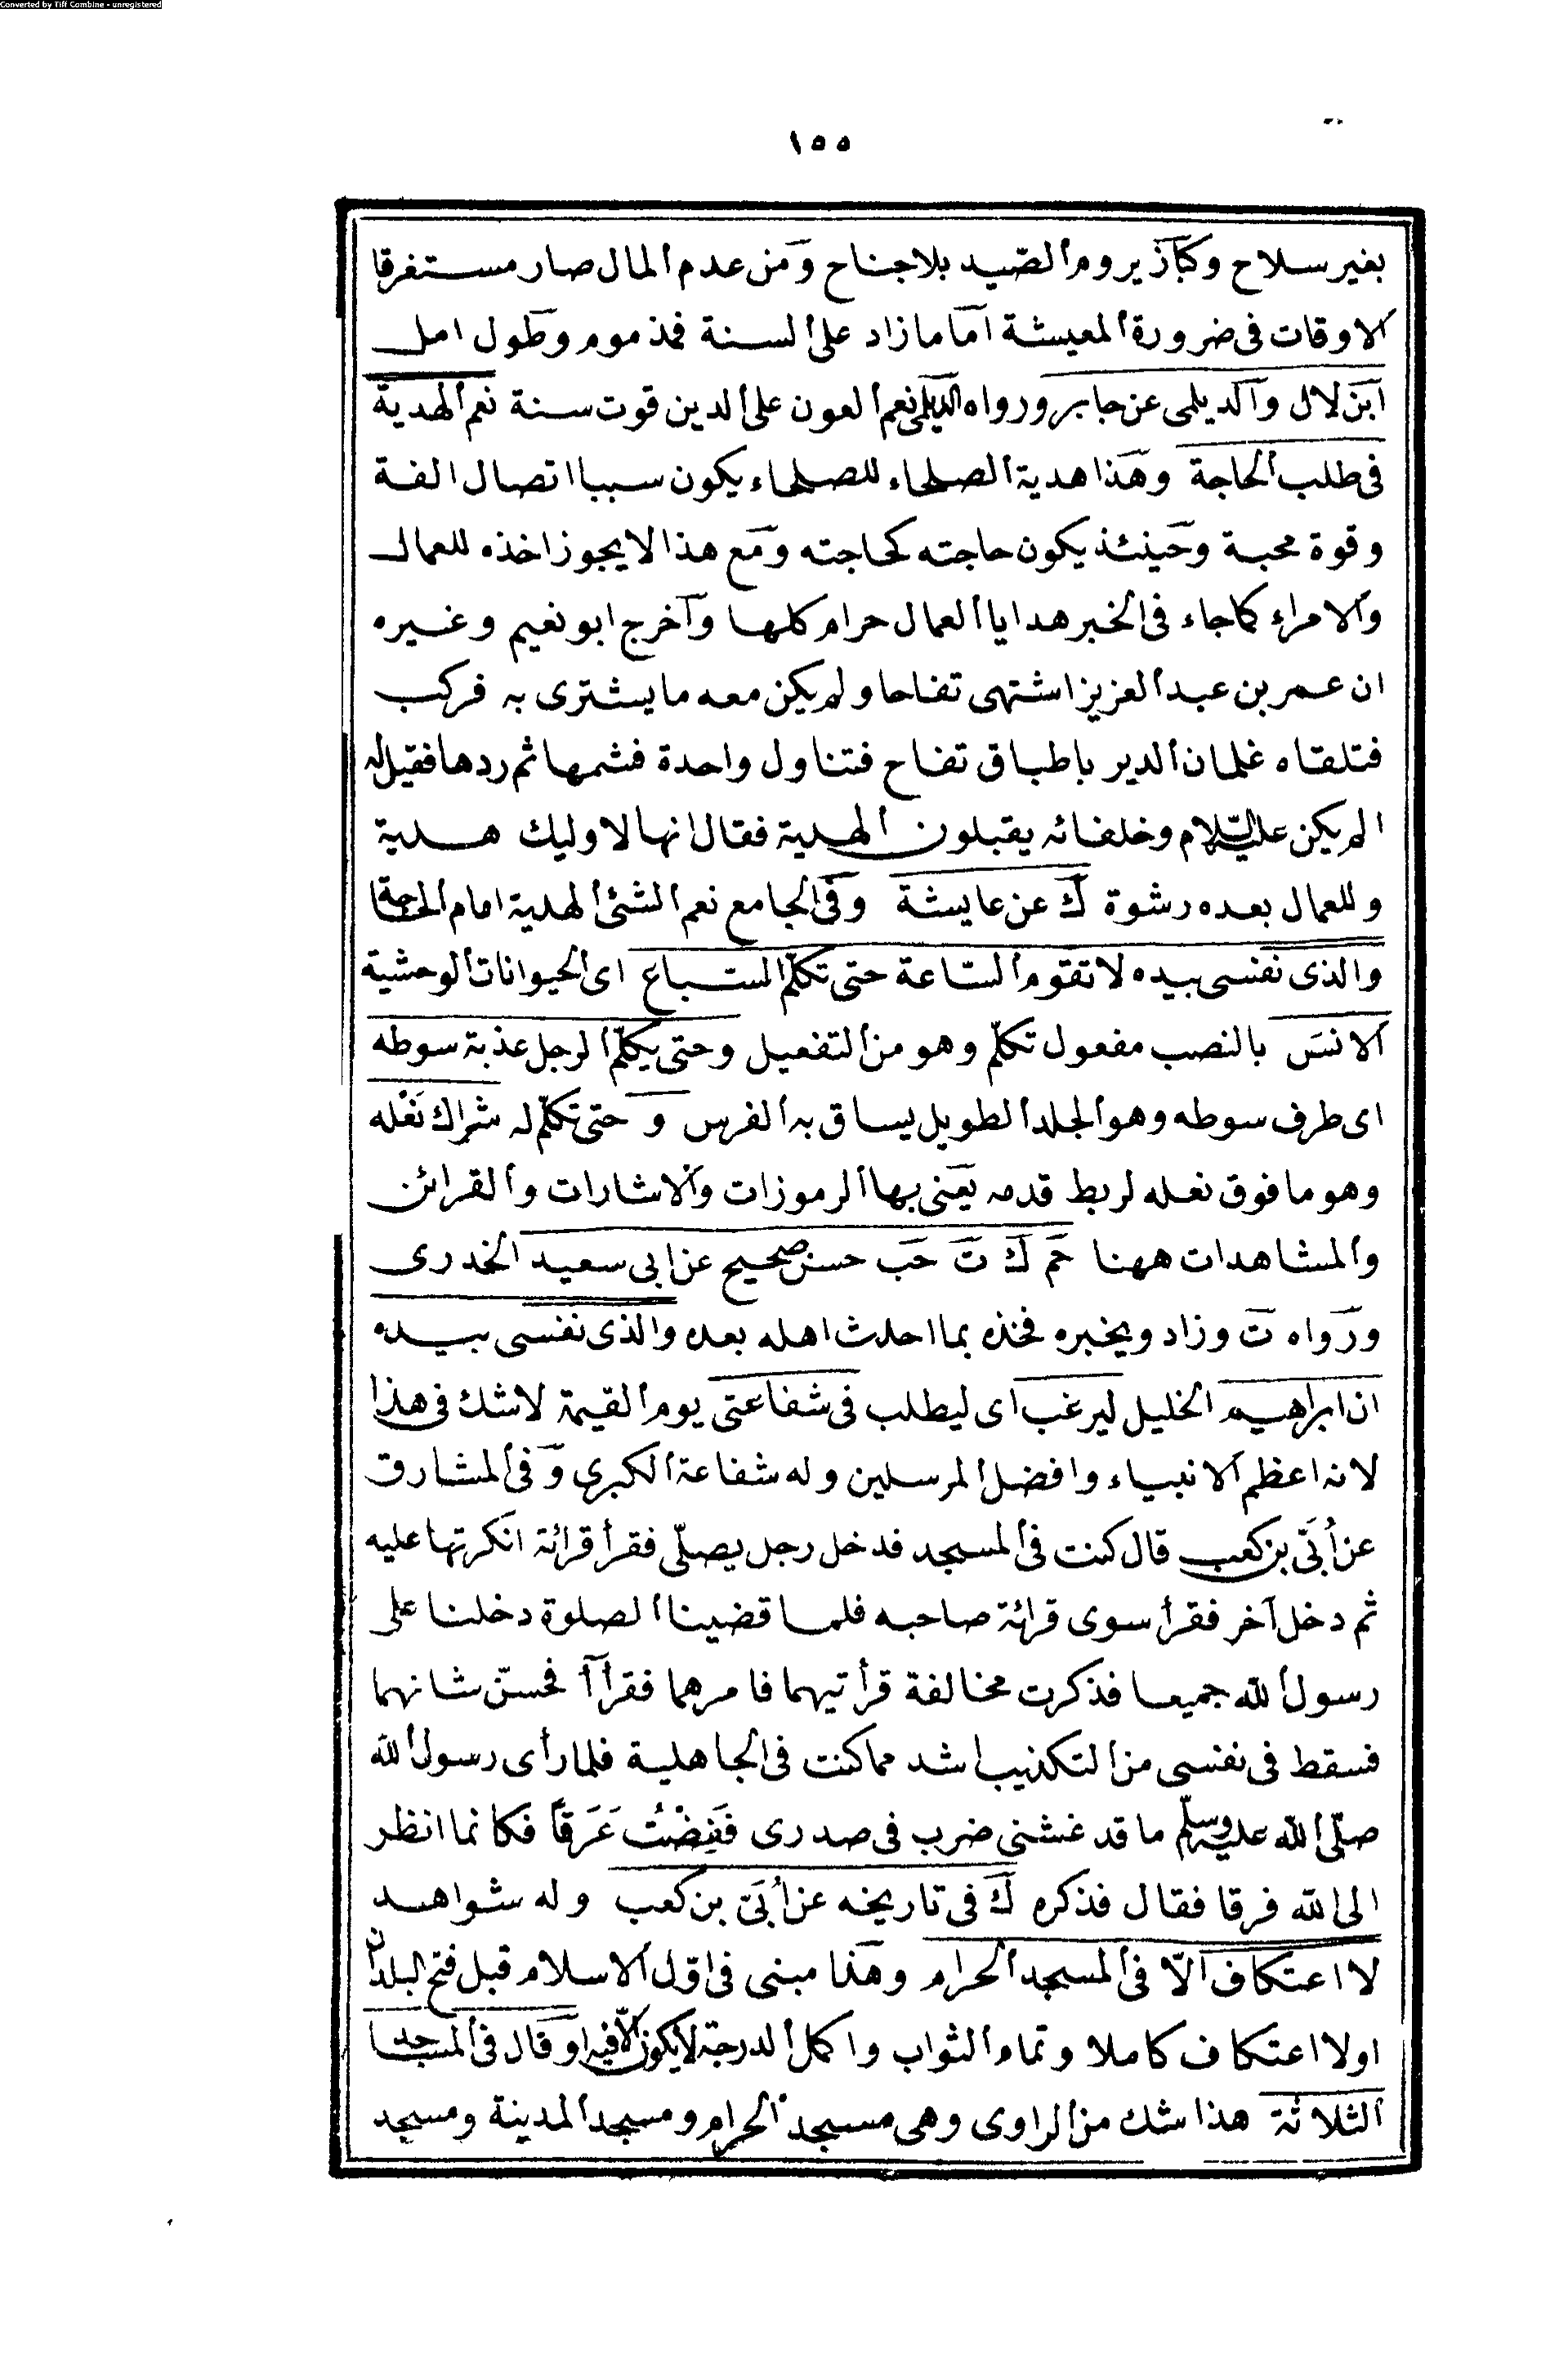 Converted by Tiff Combine - unregistered
١٥٥
بغير سلاح وكباز يروم الصّيد بلا جناح ومن عدم المال صار مستغرقا
الاوقات فى ضرورة المعيشة اما ما زاد على السنة فمذموم وطول امل
ابن لال والديلمى عن جابر ورواه الديلمى نعم العون على الدين قوت سنة نعم الهدية
فى طلب الحاجة وهذا هدية الصلحاء للصلحاء يكون سببا اتصال الفة
وقوة محبة وحينئذ يكون حاجته كحاجته ومع هذا لا يجوز اخذه للعمال
والامراء كما جاء فى الخبر هدايا العمال حرام كلها واخرج ابو نعيم وغيره
ان عمر بن عبد العزيز اشتهى تفاحا ولم يكن معه ما يشترى به فركب
فتلقاه غلمان الدير باطباق تفاح فتناول واحدة فشمها ثم ردها فقيل له
الم يكن عليه السّلام وخلفائه يقبلون الهدية فقال انها لاوليك هدية
وللعمال بعده رشوة ك عن عايشة وفى الجامع نعم الشئ الهدية امام الحاجة
والذى نفسى بيده لا تقوم السّاعة حتى تكلّم السباع اى الحيوانات الوحشية
الانسَ بالنصب مفعول تكلّم وهو من التفعيل وحتى يكلّم الرجل عذبة سوطه
اى طرف سوطه وهو الجلد الطويل يساق به الفرس و حتى تكلّم له شراك نَعْله
وهو ما فوق نعله لربط قدمه يعنى بها الرموزات والاشارات والقرائن
والمشاهدات ههنا حم ك ت حب حسن صحيح عن ابى سعيد الخدرى
ورواه ت وزاد ويخبره فخذه بما احدث اهله بعده والذى نفسى بيده
ان ابراهيم الخليل ليرغب اى ليطلب فى شفاعتى يوم القيمة لا شك فى هذا
لانه اعظم الانبياء وافضل المرسلين وله شفاعة الكبرى وفى المشارق
عن أبَىّ بن كعب قال كنت فى المسجد فدخل رجل يصلّى فقرأ قرائة انكرتها عليه
ثم دخل آخر فقرأ سوى قرائة صاحبه فلما قضينا الصلوة دخلنا على
رسول الله جميعا فذكرت مخالفة قرأتيهما فامرهما فقرأآ فحسّن شانهما
فسقط فى نفسى من التكذيب اشد مما كنت فى الجاهلية فلما رأى رسول الله
صلّى الله عليه وسلّم ما قد غشنى ضرب فى صدرى فَفِضْتُ عَرَقاً فكانما انظر
الى الله فرقا فقال فذكره ك فى تاريخه عن أبَىّ بن كعب وله شواهد
لا اعتكاف الّا فى المسجد الحرام وهذا مبنى فى اوّل الاسلام قبل فتح البلدان
اولا اعتكاف كاملا وتمام الثواب واكمل الدرجة لا يكون الّا فيه او قال فى المساجد
الثلاثة هذا شك من الراوى وهى مسجد الحرام ومسجد المدينة ومسجد